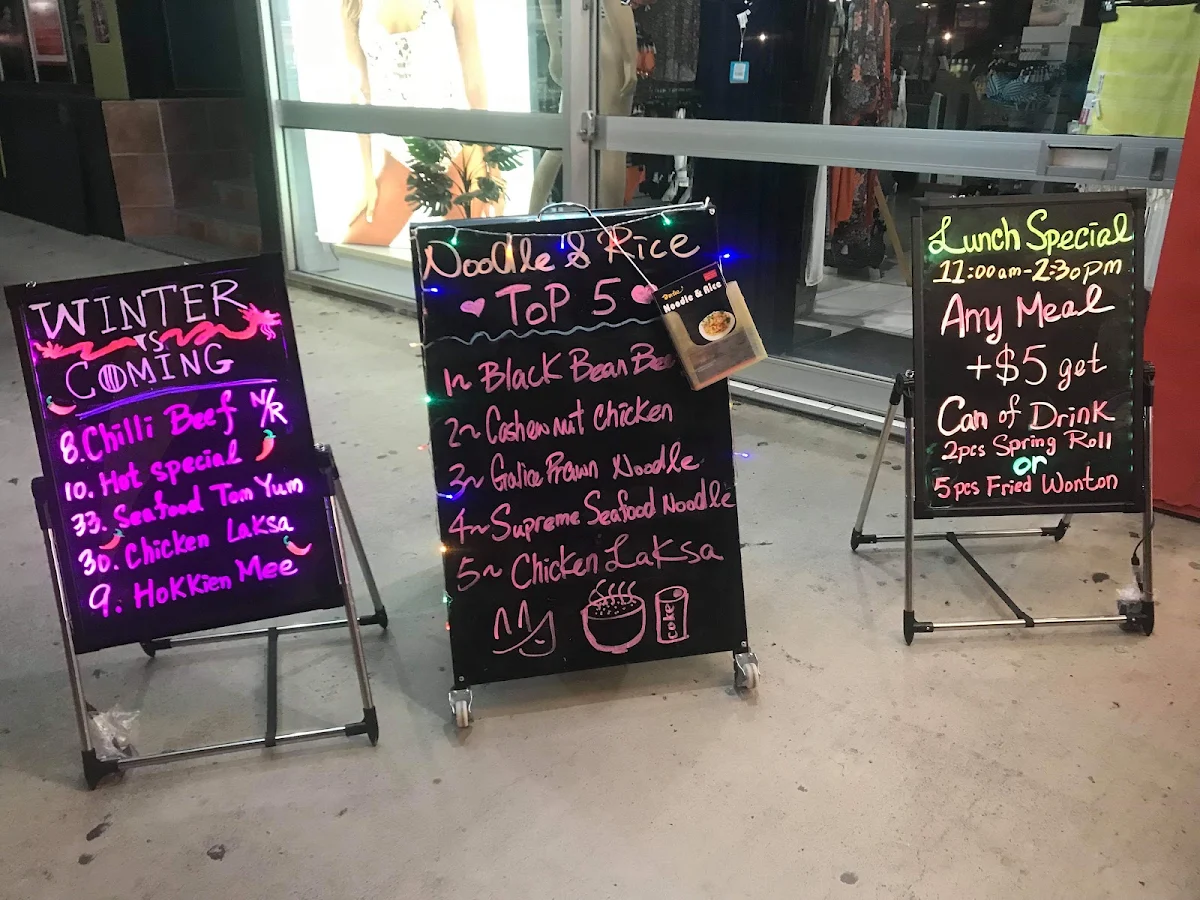 WINTER
IS
COMING
8. Chilli Beef N/R
10. Hot special
33. Seafood Tom Yum
30. Chicken Laksa
9. HoKKien Mee
Noodle & Rice
ToP 5
1~ Black Bean Bee
2~ Cashew nut Chicken
3~ Galice Prawn Noodle
4~ Supreme Seafood Noodle
5~ Chicken LaKsa
coke
Noodle & Rice
Lunch Special
11:00am-2:30pm
Any Meal
+$5 get
Can of Drink
2pcs Spring Roll
or
5pcs Fried Wonton